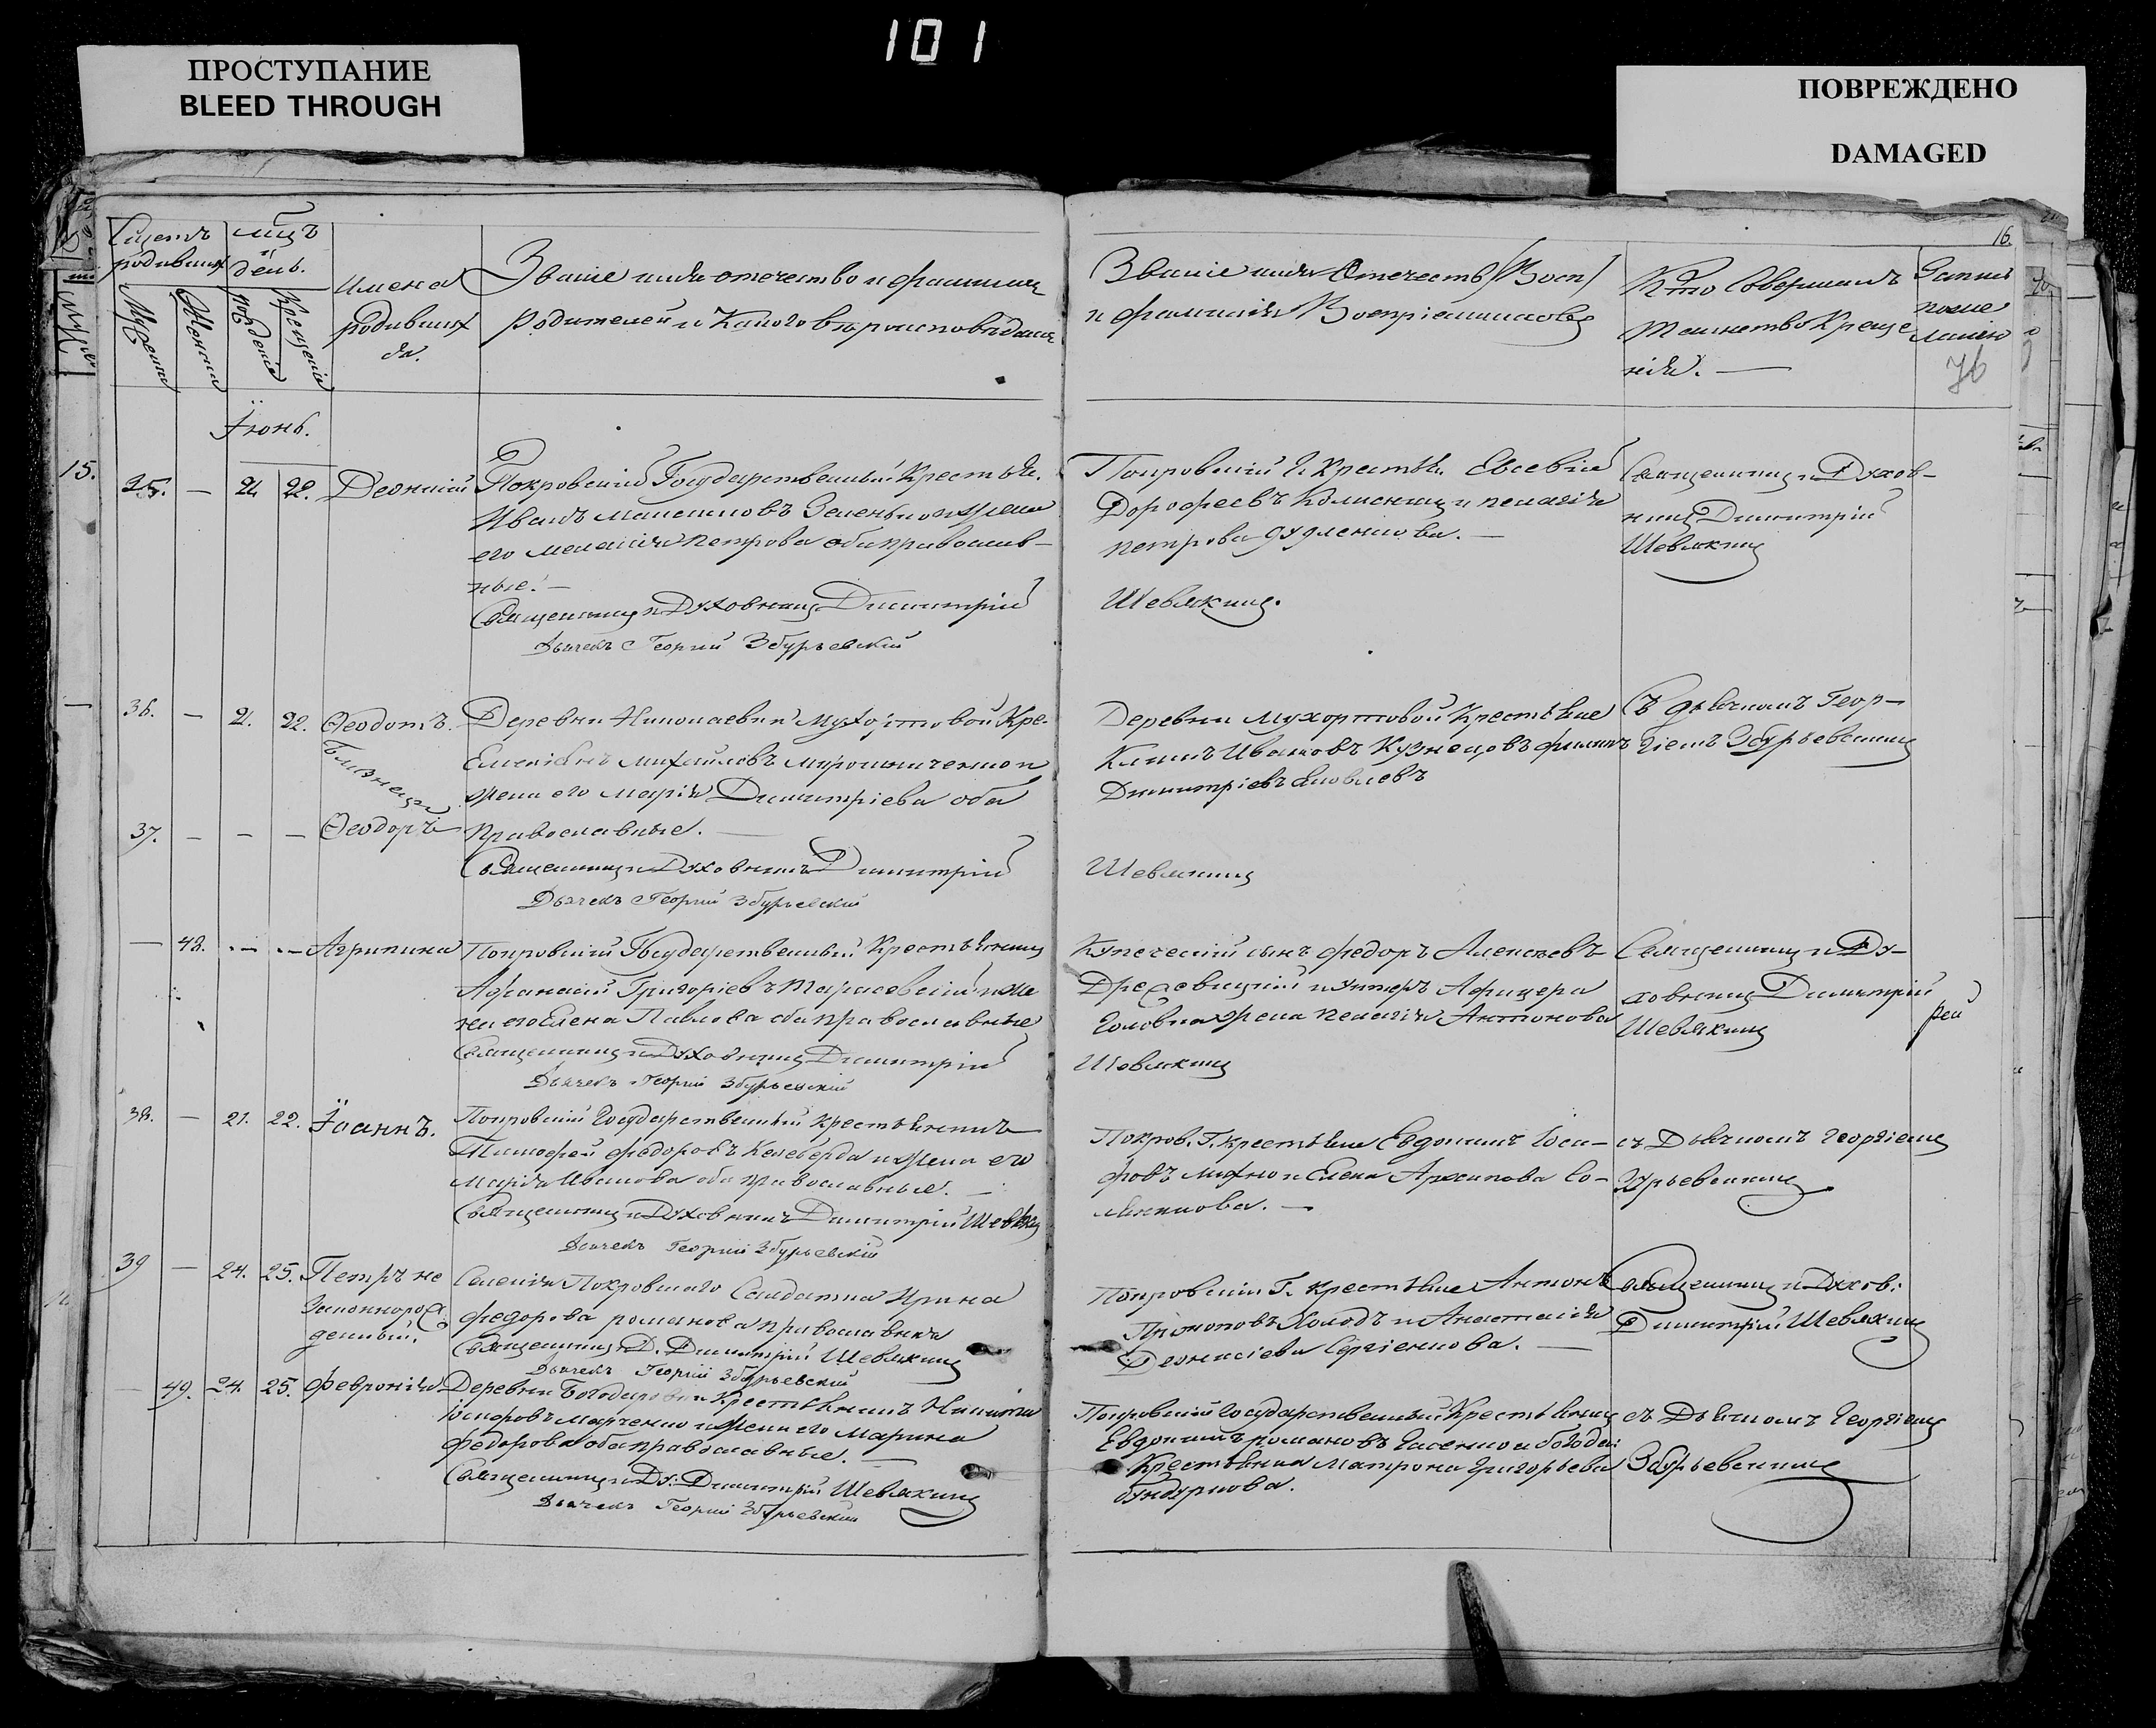 101
ПРОСТУПАНИЕ
BLEED THROUGH
ПОВРЕЖДЕНО
DAMAGED
16.
76
Счетъ родившихъ
Мужеска
Женска
мцъ и день.
рожденія
Крещенія
Имена родивших ся.
Званіе имя отечество и фамилия
родителей и Какого вѣроисповѣданія
Званіе имя Отечество
и фамилія Воспріемниковъ
Кто Совершалъ
Таинство Креще
нія.
Іюнь.
15.
35. — 21. 22. Деонисій
Покровскій Государственный Крестьян.
Иванъ Зеленько и жена
его Меланія Петрова оба православ-
ные. —
Священникъ и Духовникъ Димитрій
Дьячекъ Георгий Збурьевский
Покровскій Г. Крестьян. Евсевій
Дорофеевъ и Пелагія
Петрова
Шевякинъ.
Священникъ и Духов-
никъ Димитрій
Шевякинъ
36. — 21. 22. Ѳеодотъ.
Близнецы
37. — — — Ѳеодоръ
Деревни Николаевки Мухортовой Кре.
Михайловъ и
жена его Марія Димитріева оба
Православные. —
Священникъ и Духовникъ Димитрій
Дьячекъ Георгий Збурьевский
Деревни Мухортовой Крестьяне
Климъ Ивановъ Кузнецовъ Филипъ
Димитріевъ Яковлевъ
Шевякинъ
Съ дьячкомъ Геор-
гіемъ Збурьевскимъ
— 48. — — Агрипина
Покровскій Государственный Крестьянинъ
Афанасий Григоріевъ Тарасевскій и же
на его Елена Павлова оба православные
Священникъ и Духовникъ Димитрій
Дьячекъ Георгий Збурьевский
Купеческій сынъ Федоръ Алексеевъ
и унтеръ Афицера
жена Пелагія Антонова
Шевякинъ
Священникъ и Ду-
ховникъ Димитрій
Шевякинъ
38. — 21. 22. Іоаннъ.
Покровскій Государственный Крестьянинъ
Тимофей Федоровъ Келеберда и жена его
Марія Иванова оба православные. —
Священникъ и Духовникъ Димитрій Шевякинъ
Дьячекъ Георгий Збурьевский
Покров. Г. Крестьяне Евдокимъ Іоси-
фовъ Михно и Елена Архипова
съ Дьячкомъ Георгіемъ
Збурьевскимъ
39 — 24. 25. Петръ не
Законнорож
денный.
Селенія Покровского Салдатка Ирина
Федорова Романова православная
Священникъ и Д. Димитрій Шевякинъ
Дьячекъ Георгий Збурьевский
Покровскіи Г. Крестьяне Антонъ
Прокоповъ Холодъ и Анастасія
Деонисіева Сергіенкова. —
Священникъ и Духов:
Димитрій Шевякинъ
— 49. 24. 25. Февронія
Деревни Крестьянинъ Никита
Іосифовъ Марченко и жена его Марина
Федорова оба православные. —
Священникъ и Ду: Димитрій Шевякинъ
Дьячекъ Георгий Збурьевский
Покровскій Государственный Крестьянинъ
Евдокимъ Романовъ
Крестьянка Матрона Григорьева
съ Дьячкомъ Георгіемъ
Збурьевскимъ